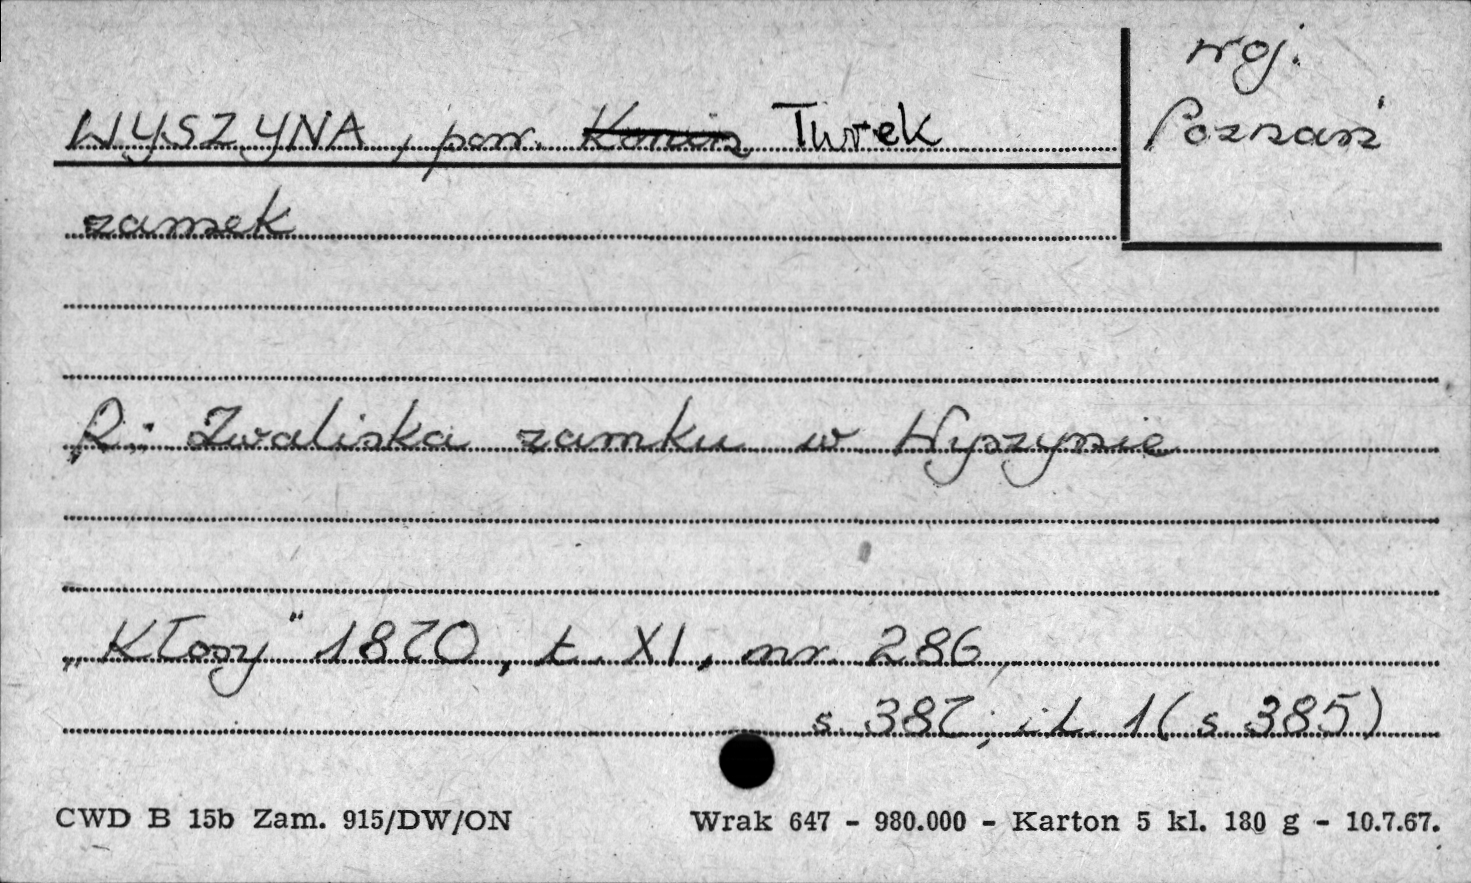 woj.
Poznań
WYSZYNA, pow. Konin Turek
zamek
R: Zwaliska zamku w Wyszynie
„Kłosy" 1870, t. XI, nr. 286,
s. 387; il. 1 (s. 385)
CWD B 15b Zam. 915/DW/ON Wrak 647 - 980.000 - Karton 5 kl. 180 g - 10.7.67.